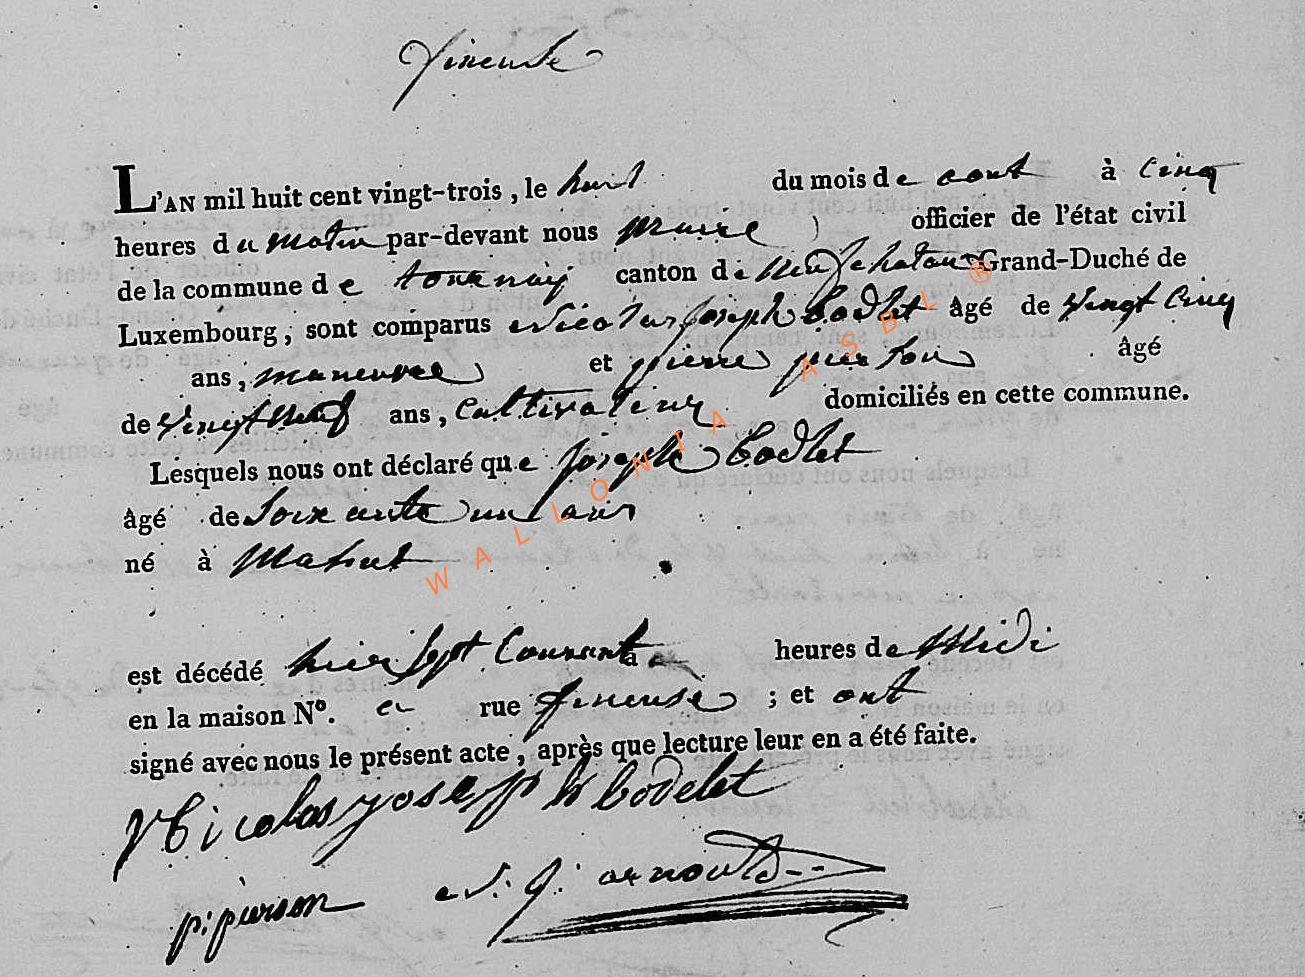 fineuse
L'AN mil huit cent vingt-trois, le huit du mois de aout à cinq
heures du matin par-devant nous Maire officier de l'état civil
de la commune de tournay canton de Neufchateau Grand-Duché de
Luxembourg, sont comparus Nicolas joseph bodlet âgé de vingt cinq
ans, maneuvre et pierre pierson âgé
de vingt neuf ans, Cultivateur domiciliés en cette commune.
Lesquels nous ont déclaré que joseph bodlet
âgé de Soixante un ans
né à
est décédé hier sept Courant à heures de Midi
en la maison N°. rue fineuse ; et ont
signé avec nous le présent acte, après que lecture leur en a été faite.
Nicolas joseph bodelet
p: pierson j: arnould
WALLONIA ASBL ®